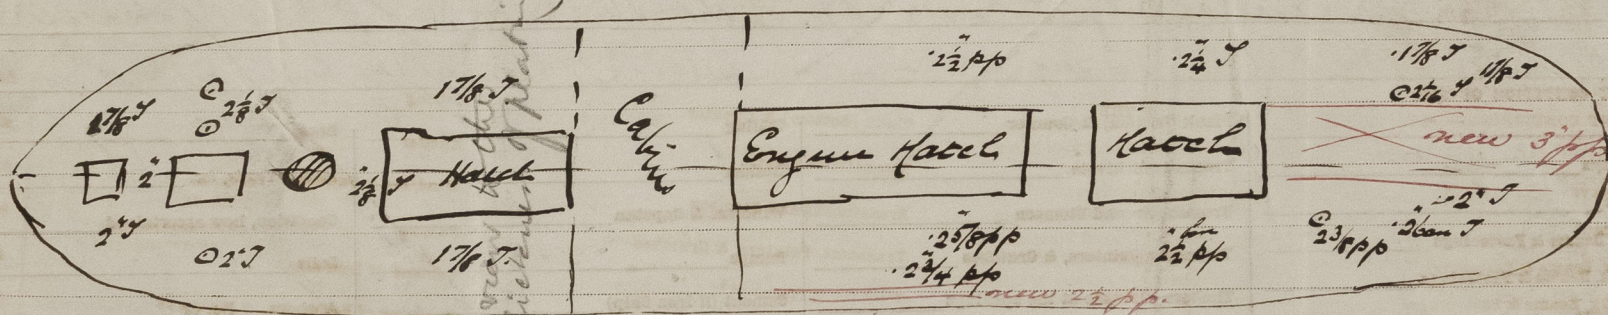 1 7/8 T
2 1/8 T
2"
2" T
2" T
1 7/8 T
2 1/8 T
Hatch
1 7/8 T.
Cabins
2 1/2 pp
Engine Hatch
2 5/8 pp
2 3/4 pp
new 2 1/2 pp.
2 1/4 T
Hatch
2 1/2 pp
1 7/8 T
1 7/8 T
2 1/16 T
new 3" pp
2" T
2 3/8 pp